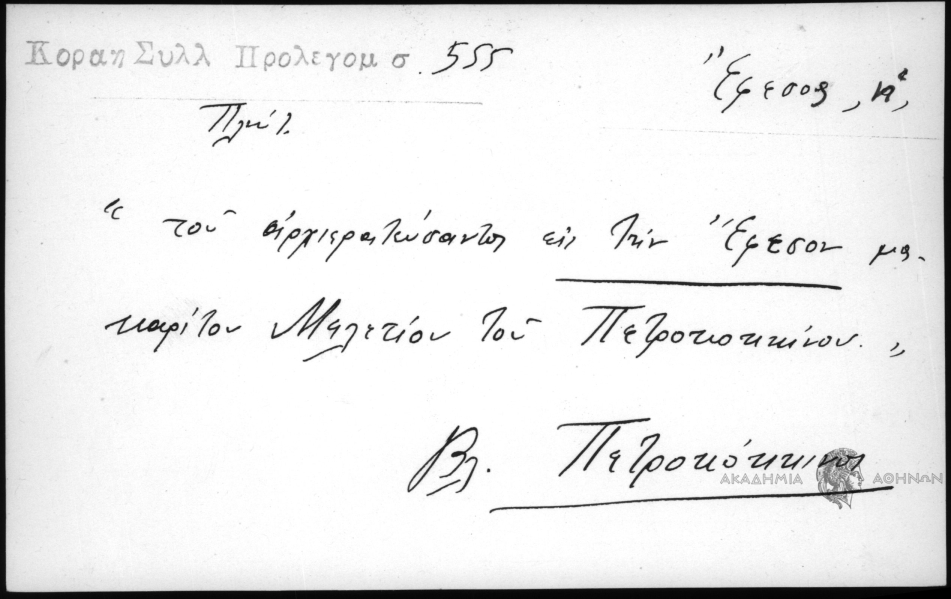 Κοραη Συλλ Προλεγομ σ. 555
Ἔφεσος, ἡ,
Πλούτ.
“ τοῦ ἀρχιερατεύσαντος εἰς τὴν Ἔφεσον μα-
καρίτου Μελετίου τοῦ Πετροκοκκίνου. „
Βλ. Πετροκόκκινος
ΑΚΑΔΗΜΙΑ ΑΘΗΝΩΝ